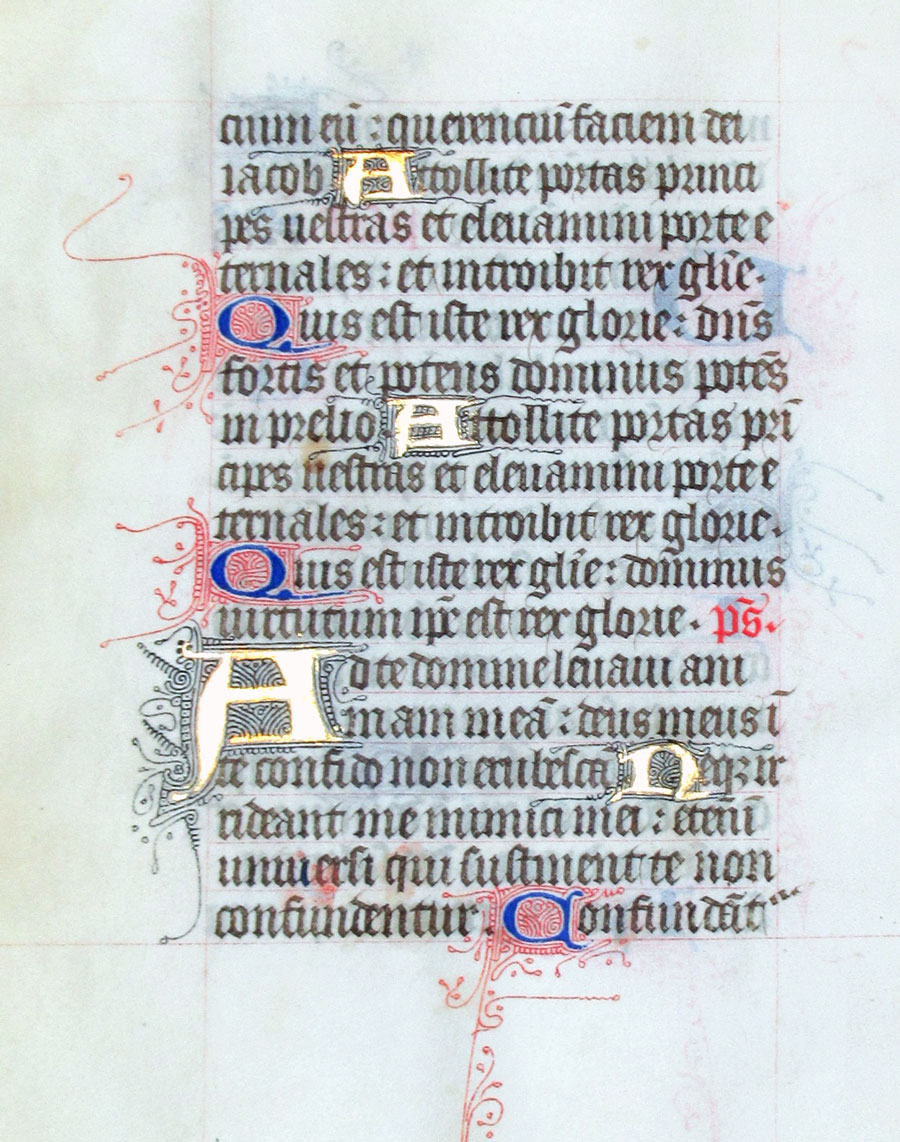 cium eū : querenciū faciem dei
iacob Attollite portas princi
pes uestras et eleuamini porte e
ternales : et introibit rex gl̄ie.
Quis est iste rex glorie : dn̄s
fortis et potens dominus potēs
in prelio Attollite portas pri
cipes uestras et eleuamini porte e
ternales : et introibit rex glorie.
Quis est iste rex gl̄ie : dominus
uirtutum ip̄e est rex glorie. p̄s.
Ad te domine leuaui ani
mam meā : deus meus ī
te confido non erubescā Neqꝫ ir
rideant me inimici mei : etenī
uniuersi qui sustinent te non
confundentur. Confundāt